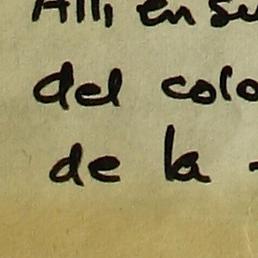 Allí en su
del colo
de la